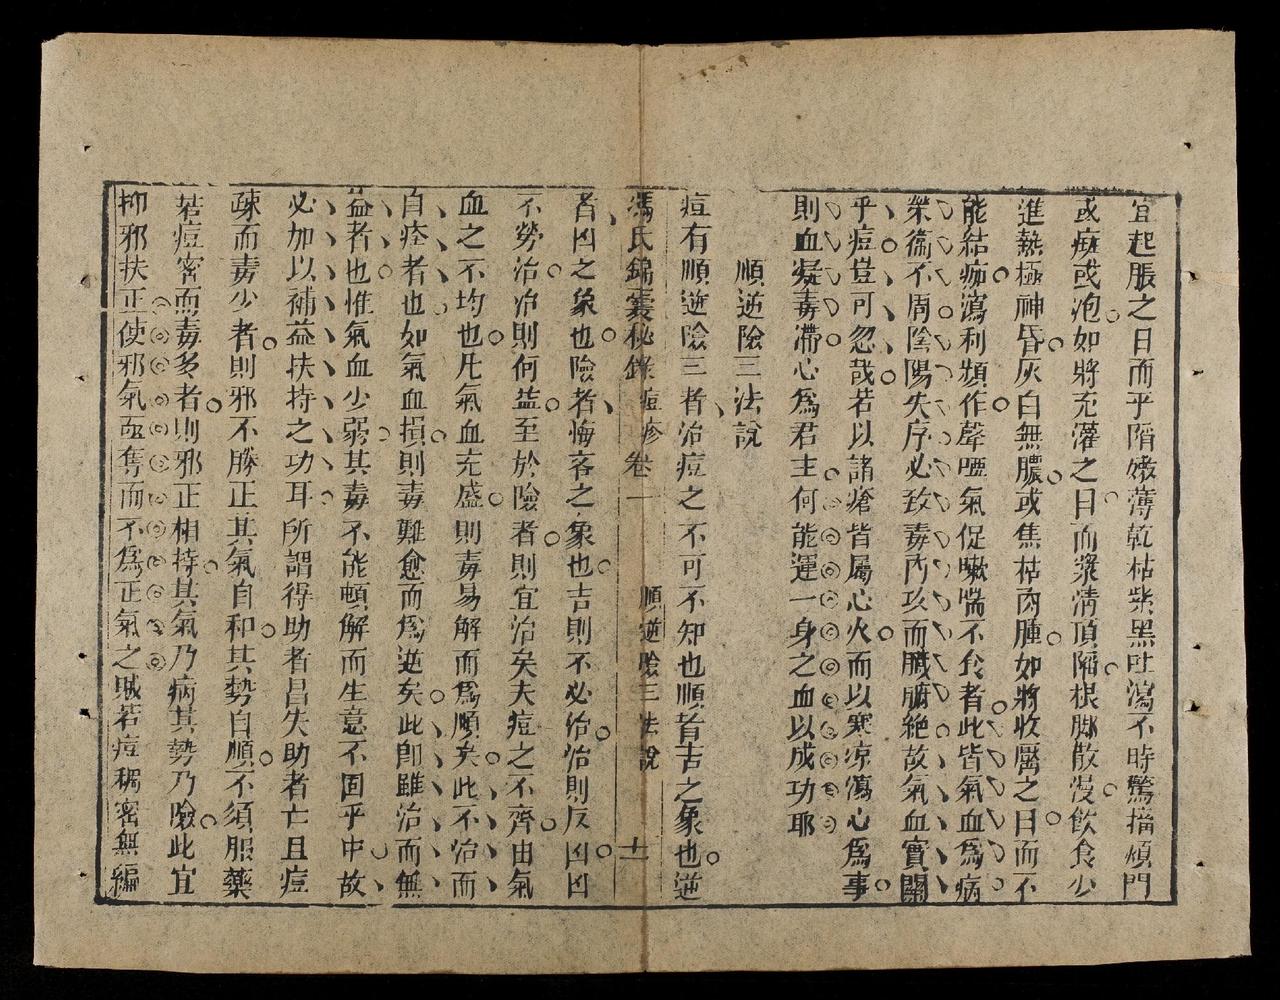 宜起脹之日而乎陷嫩薄乾枯紫黑吐瀉不時驚搐煩悶
或癍或泡如將充灌之日而漿清頂陷根脚散漫飲食少
進熱極神昏灰白無膿或焦枯肉腫如將收靨之日而不
能結痂瀉利頻作聲啞氣促嗽喘不食者此皆氣血為病
榮衞不周陰陽失序必致毒內攻而臟腑絶故氣血實關
乎痘豈可忽哉若以諸瘡皆屬心火而以寒凉瀉心為事
則血凝毒滯心為君主何能運一身之血以成功耶
順逆險三法說
痘有順逆險三者治痘之不可不知也順者吉之象也逆
馮氏錦囊秘錄 痘疹卷一 順逆險三法說 十二
者凶之象也險者悔吝之象也吉則不必治治則反凶凶
不勞治治則何益至於險者則宜治矣夫痘之不齊由氣
血之不均也凡氣血充盛則毒易解而為順矣此不治而
自痊者也如氣血損則毒難愈而為逆矣此卽雖治而無
益者也惟氣血少弱其毒不能頓解而生意不固乎中故
必加以補益扶持之功耳所謂得助者昌失助者亡且痘
疎而毒少者則邪不勝正其氣自和其勢自順不須服藥
若痘密而毒多者則邪正相持其氣乃病其勢乃險此宜
抑邪扶正使邪氣亟奪而不為正氣之賊若痘稠密無編